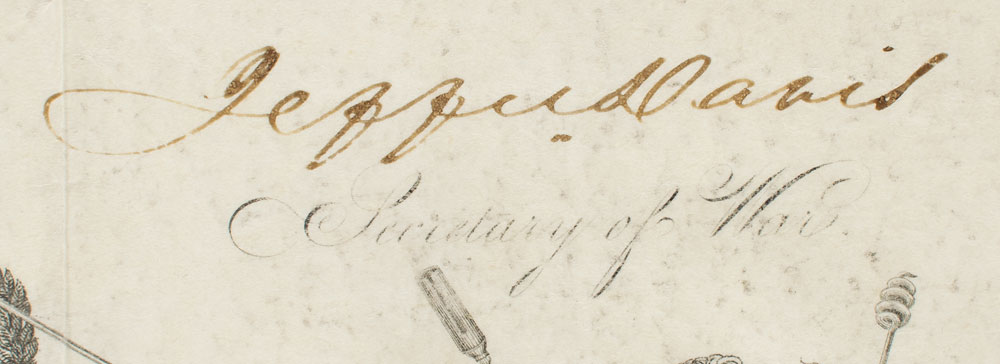 Jeffn Davis
Secretary of War.